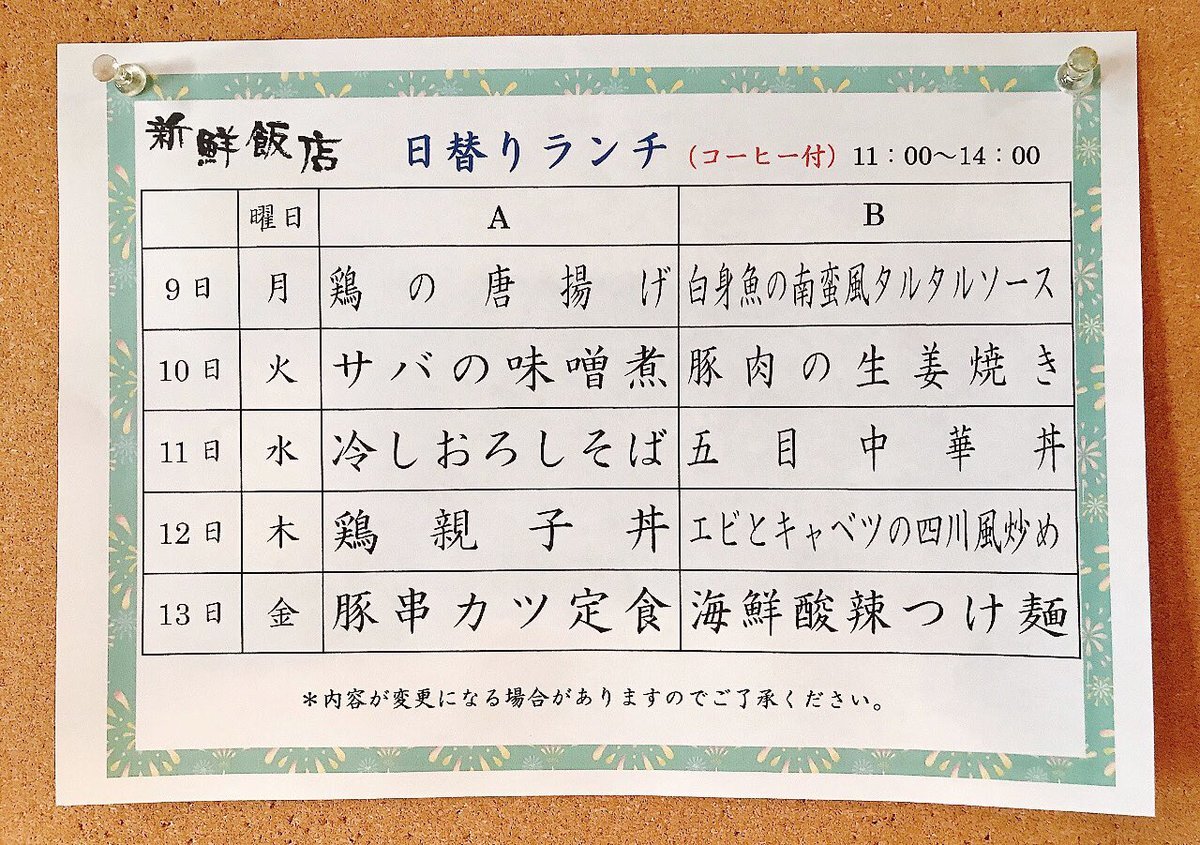 新鮮飯店 日替りランチ (コーヒー付) 11:00～14:00
曜日 A B
9日 月 鶏の唐揚げ 白身魚の南蛮風タルタルソース
10日 火 サバの味噌煮 豚肉の生姜焼き
11日 水 冷しおろしそば 五目中華丼
12日 木 鶏親子丼 エビとキャベツの四川風炒め
13日 金 豚串カツ定食 海鮮酸辣つけ麺
＊内容が変更になる場合がありますのでご了承ください。